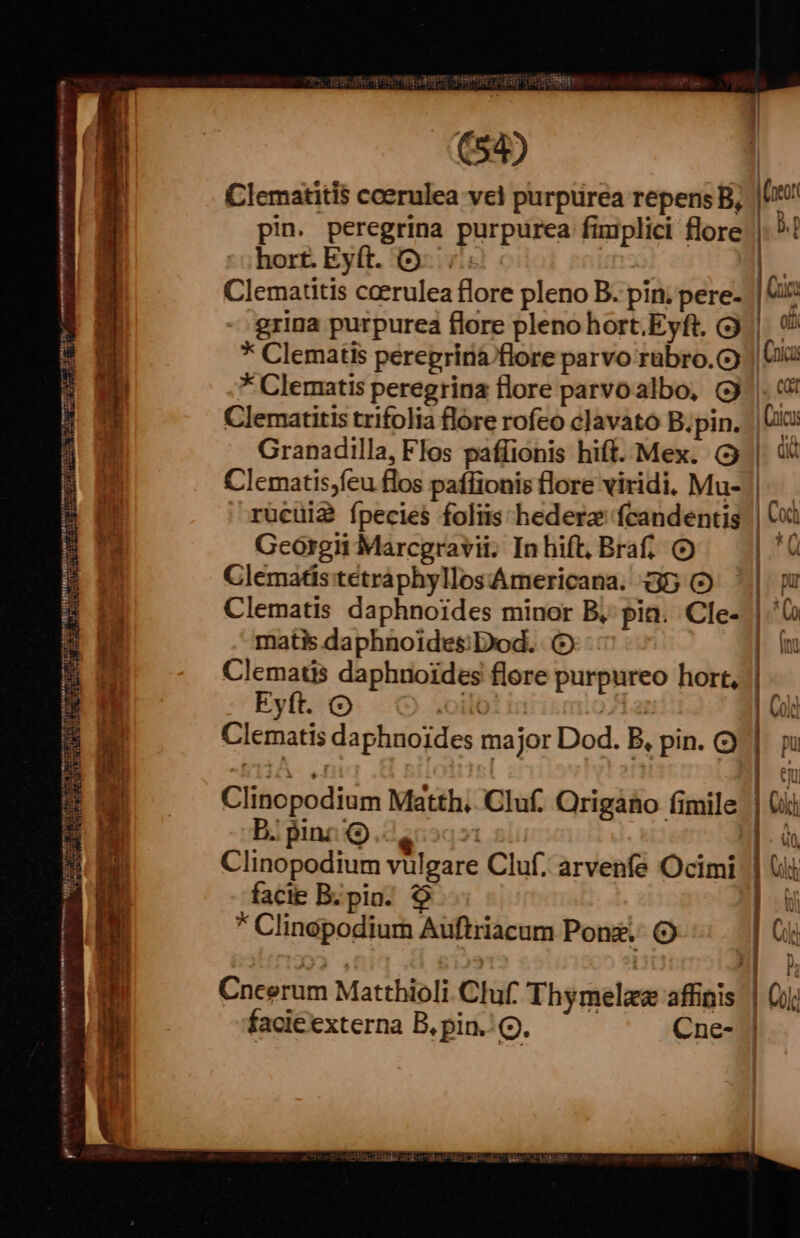 (54)
Clematitis cœrulea vel purpurea repens B,
pin. peregrina purpurea ſimplici flore
hort. Eyſt. ☉
Clematitis cœrulea flore pleno B. pin. pere-
grina purpurea flore pleno hort. Eyſt. ☉
* Clematis peregrina flore parvo rubro. ☉
* Clematis peregrina flore parvo albo, ☉
Clematitis trifolia flore roſeo clavato B. pin.
Granadilla, Flos paſſionis hiſt. Mex. ☉
Clematis, ſeu flos paſſionis flore viridi, Mu-
rucuiæ ſpecies foliis hederæ ſcandentis
Georgii Marcgravii. In hiſt, Braſ, ☉
Clematis tetraphyllos Americana. ☉
Clematis daphnoïdes minor B, pin. Cle-
matis daphnoides Dod. ☉
Clematis daphnoïdes flore purpureo hort,
Eyſt. ☉
Clematis daphnoïdes major Dod. B, pin. ☉
Clinopodium Matth, Cluſ. Origano ſimile
B. pin. ☉
Clinopodium vulgare Cluſ. arvenſe Ocimi
facie B. pin. ♀
* Clinopodium Auſtriacum Ponæ. ☉
Cneorum Matthioli Cluſ. Thymelææ affinis
facie externa B, pin. ☉.
Cne-